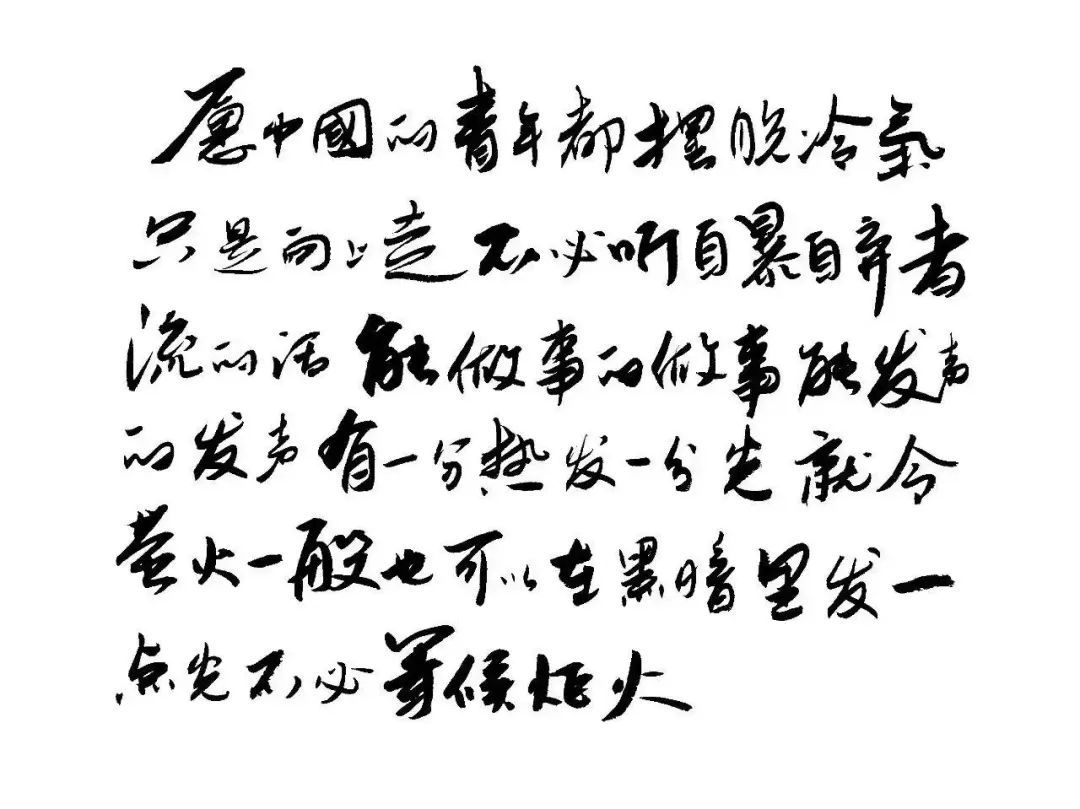 愿中國的青年都摆脱冷氣
只是向上走不必听自暴自弃者
流的话能做事的做事能发声
的发声有一分热发一分光就令
萤火一般也可以在黑暗里发一
点光不必等候炬火